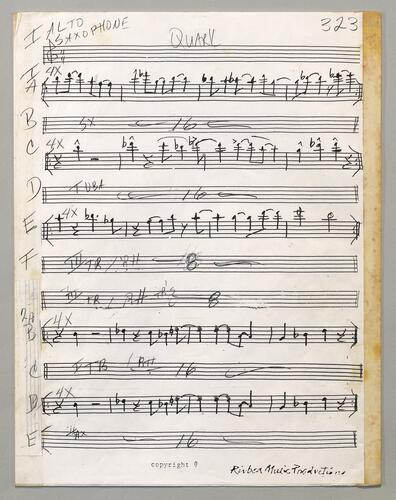 I ALTO SAXOPHONE
QUARK
323
I A 4X
B SX 16
C 4X
D TUBA 16
E 4X
F III TR / RH 8
TR / RH 8
B 4X
C I TB / RH 16
D 4X
E 16
copyright ©
Rivbea Music Productions